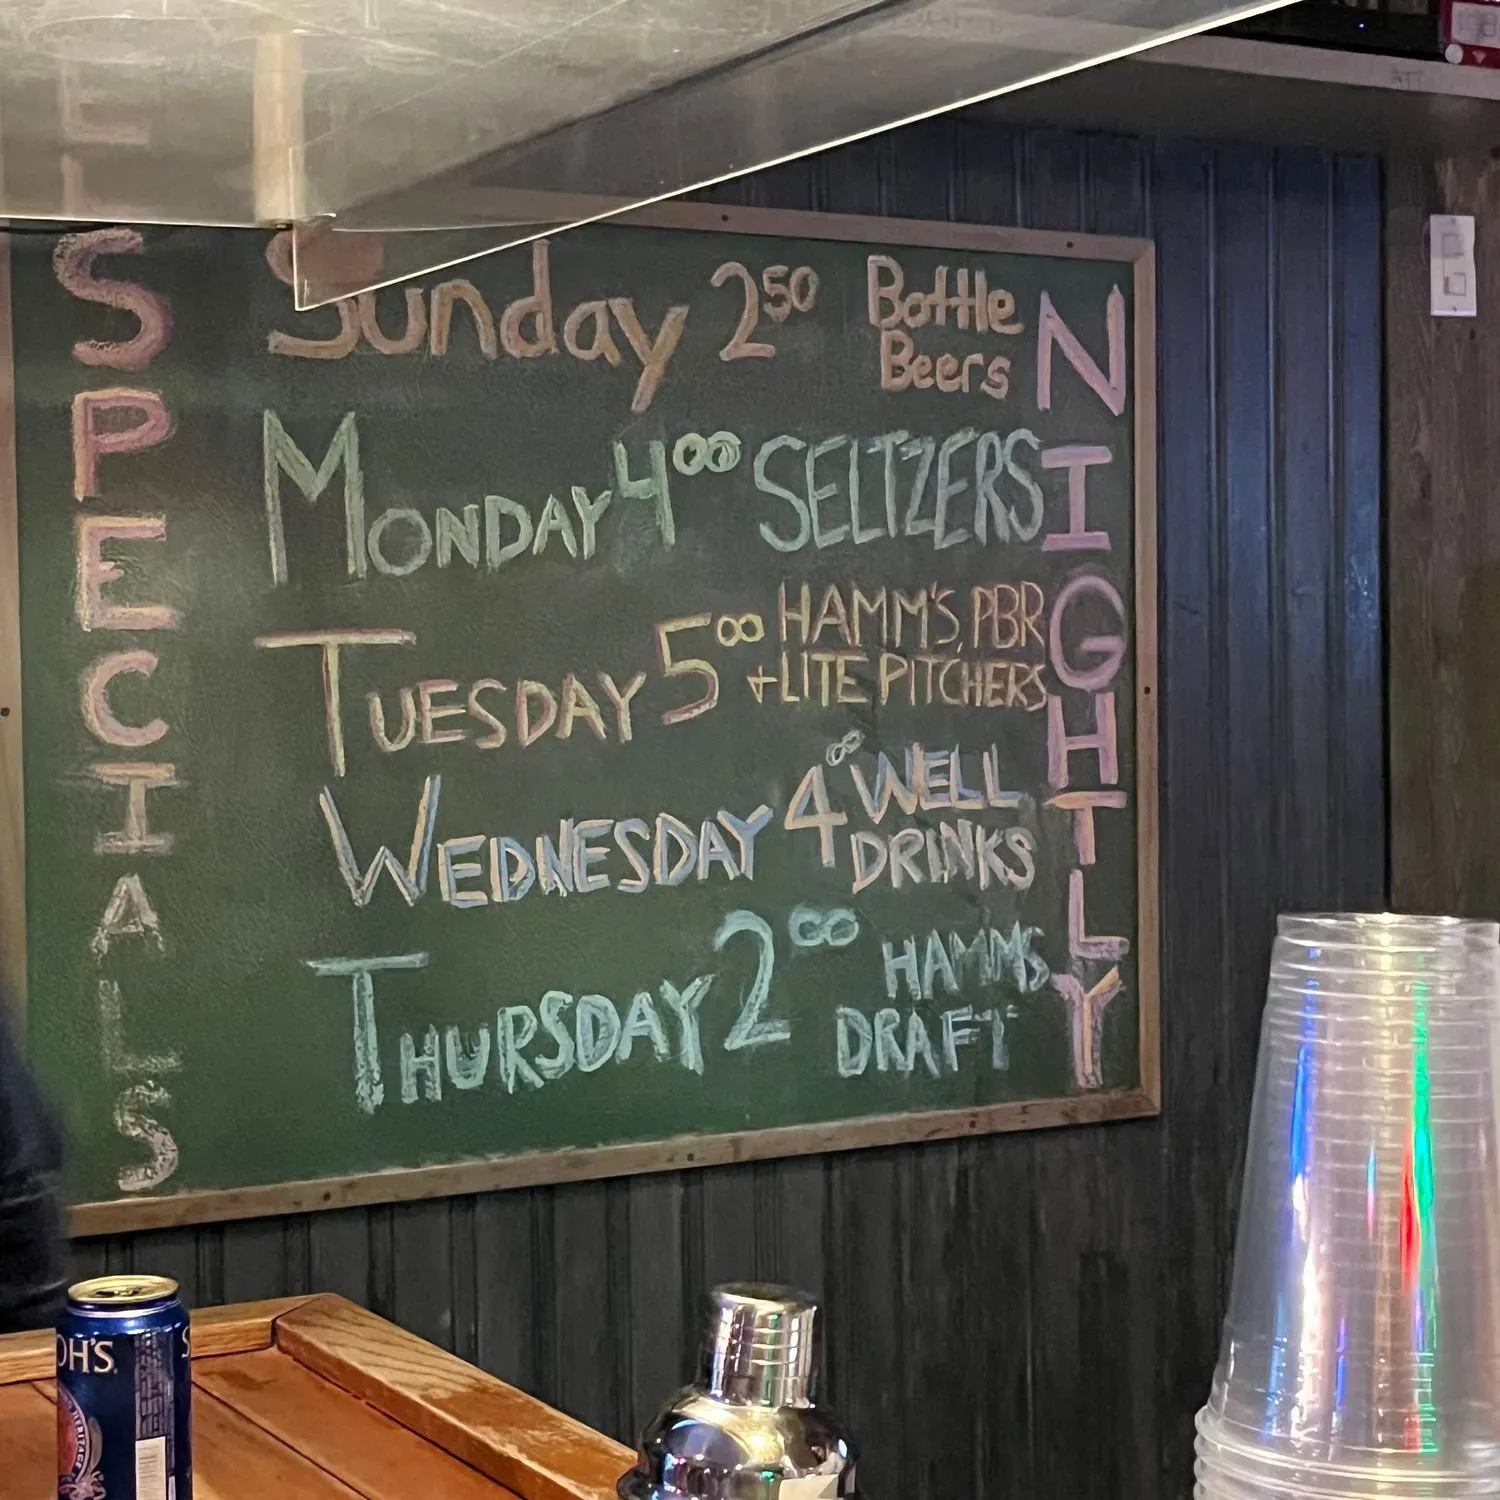 SPECIALS
Sunday 2.50 Bottle Beers
MONDAY 4.00 SELTZERS
TUESDAY 5.00 HAMM'S, PBR
+LITE PITCHERS
WEDNESDAY 4.00 WELL
DRINKS
THURSDAY 2.00 HAMMS
DRAFT
NIGHTLY
OH'S